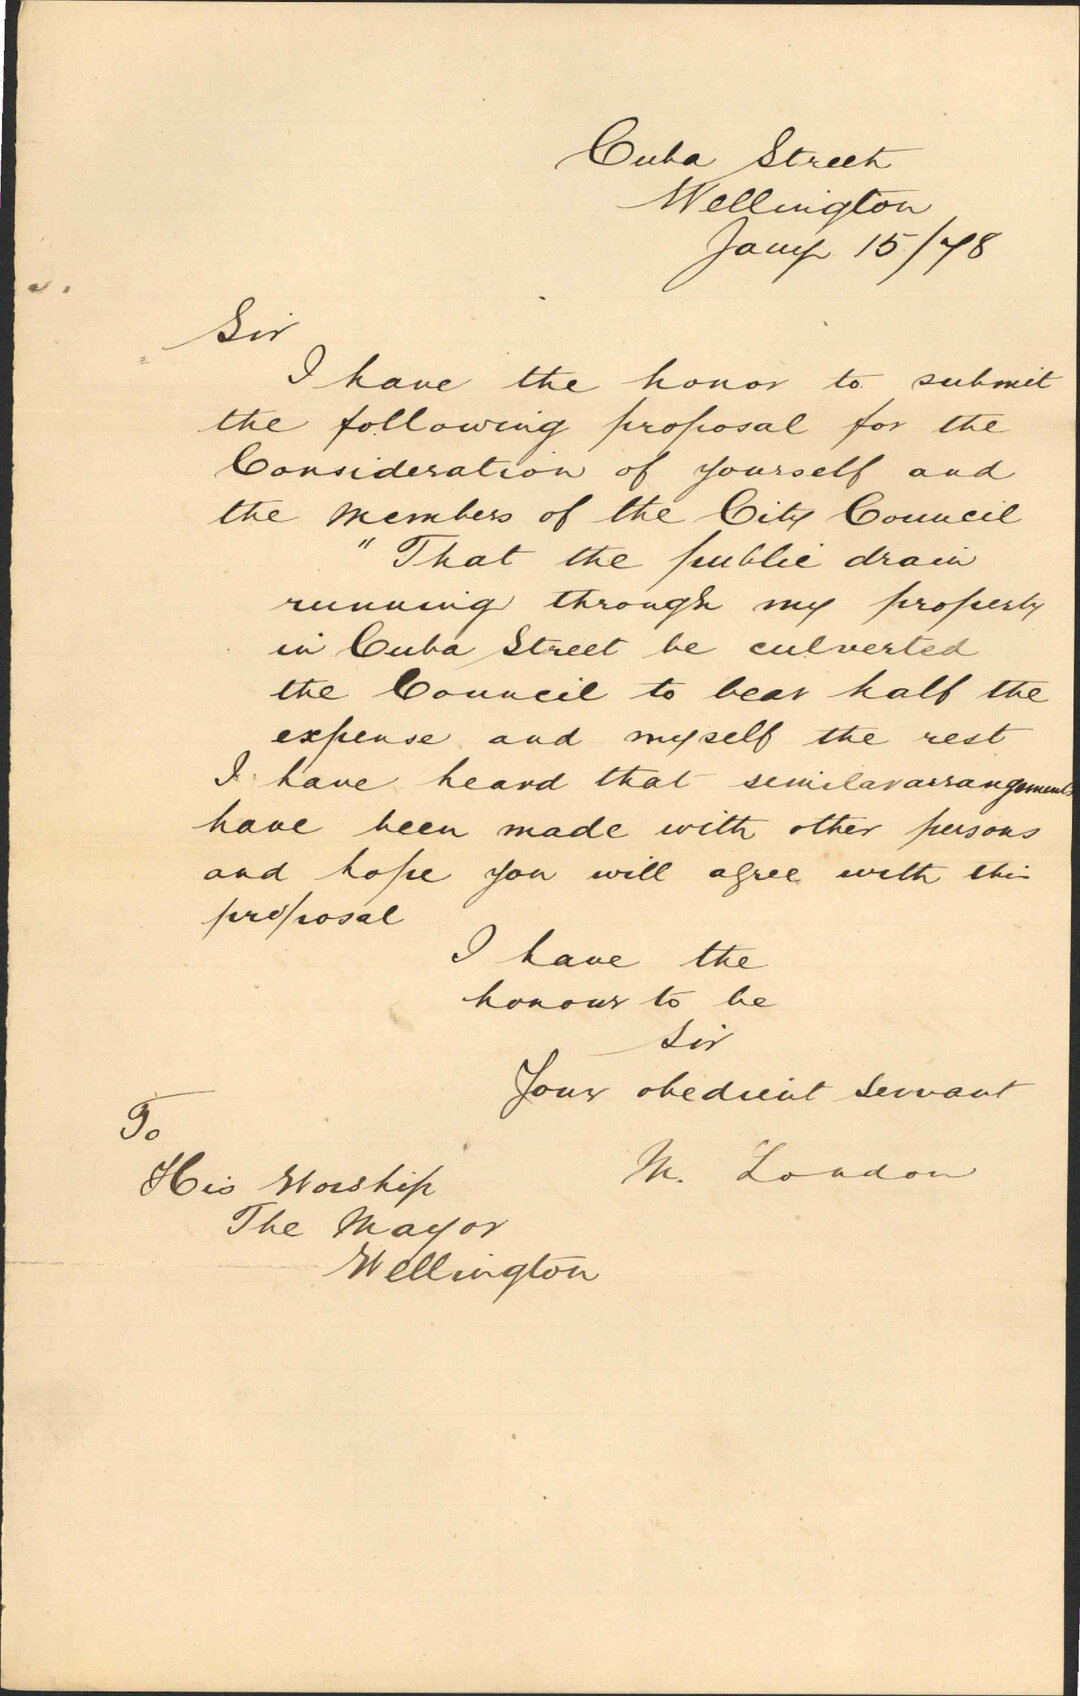 Cuba Street
Wellington
Jany 15/78
Sir
I have the honor to submit
the following proposal for the
Consideration of yourself and
the members of the City Council
"That the public drain
running through my property
in Cuba Street be culverted
the Council to bear half the
expense and myself the rest
I have heard that similar arrangements
have been made with other persons
and hope you will agree with this
proposal
I have the
honour to be
Sir
Your obedient servant
M. London
To
His Worship
The Mayor
Wellington